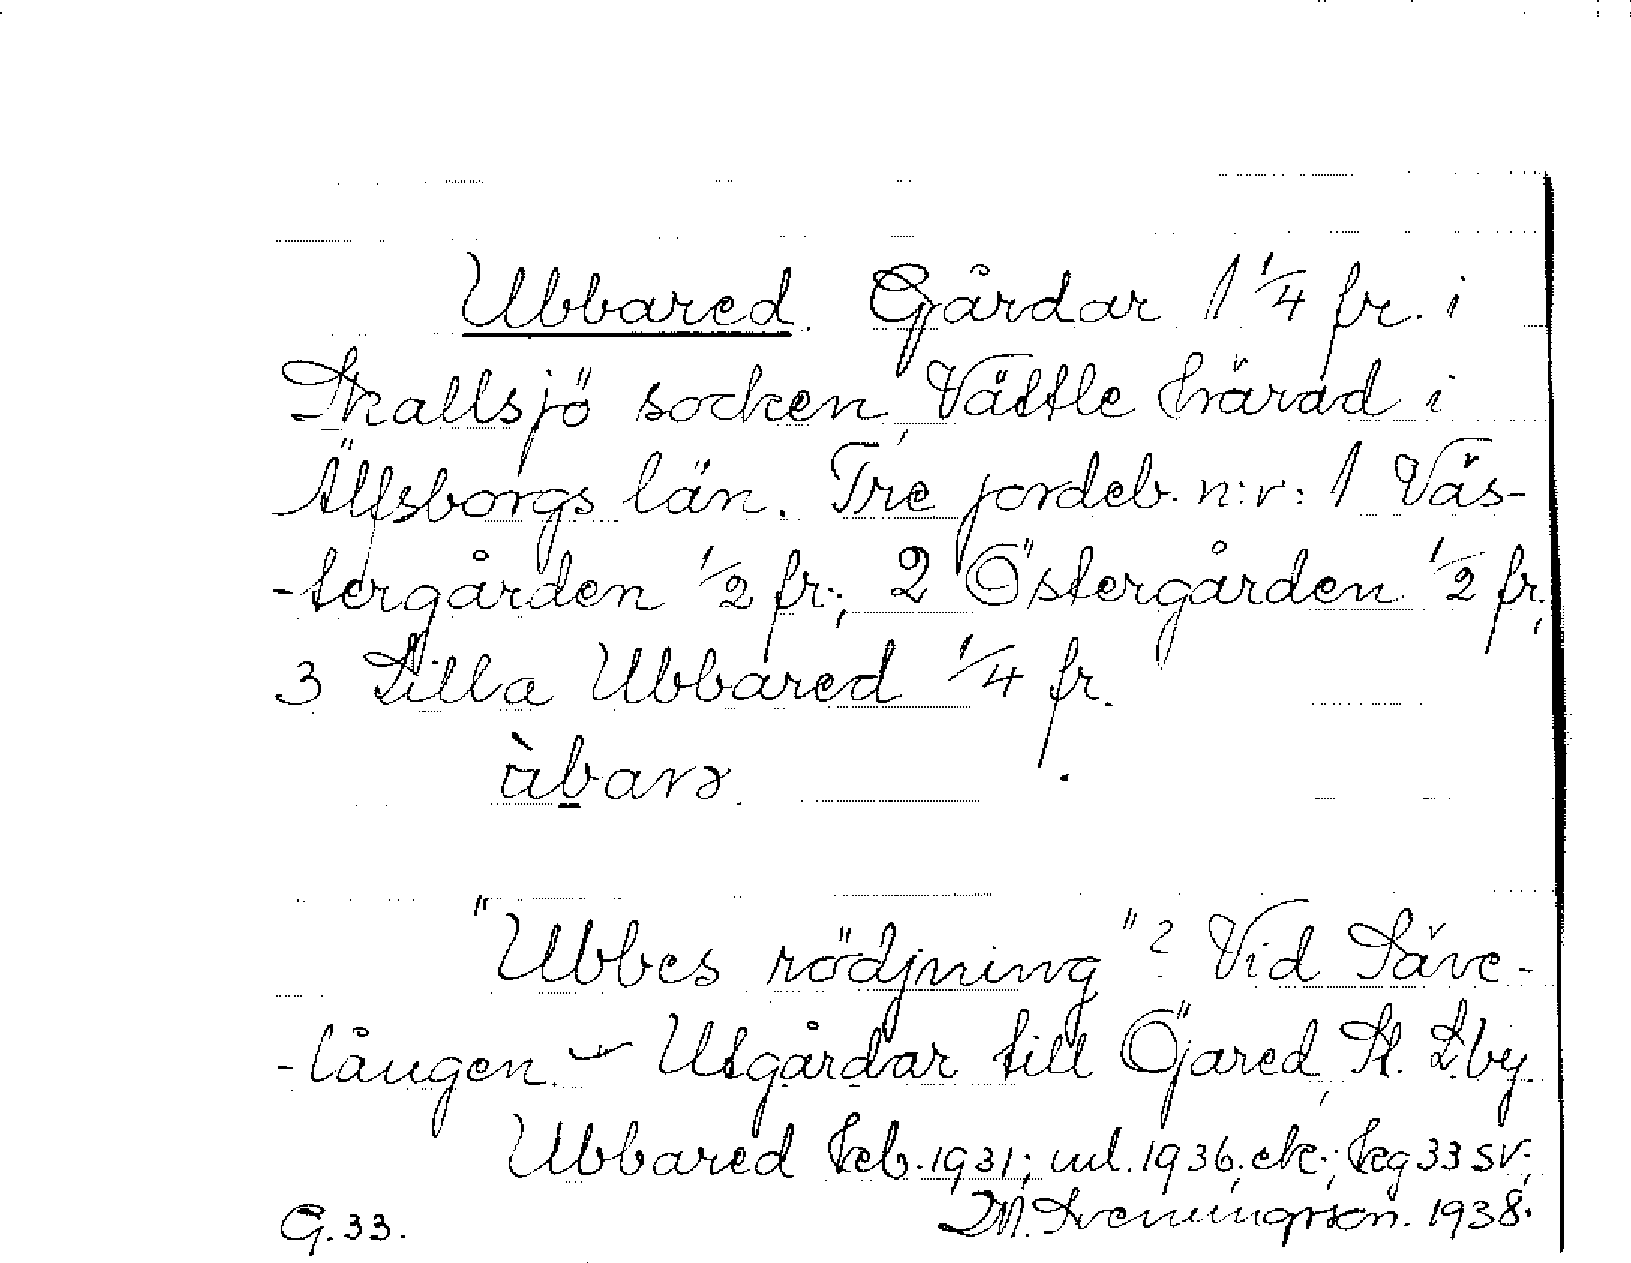 Ubbared. Gårdar 1 1/4 fr. i
Skallsjö socken, Vättle härad i
Älfsborgs län. Tre jordeb. n:r: 1 Väs-
-tergården 1/2 fr.; 2 Östergården 1/2 fr.,
3 Lilla Ubbared 1/4 fr.
"Ubbes rödjning"? Vid Säve-
-lången. – Utgårdar till Öjared, St. L.by.
Ubbared keb. 1931; ul. 1936, ek.; kg 33 SV;
G. 33.
D.M. Svenningsson. 1938.